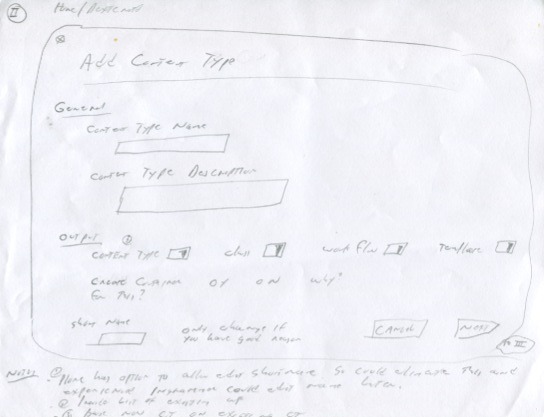 II
Home/Dexterity
Add Content Type
General
Content Type Name
Content Type Description
Output ①
Content Type class workflow Template
Create Container OY ON Why?
For This?
Short Name
only change if
you have good reason
Cancel Next
to III
Notes ① Plone has option to allow edit shortname. So could eliminate this and
experienced programmer could edit name later.
② list of existing
③ base new CT on existing CT